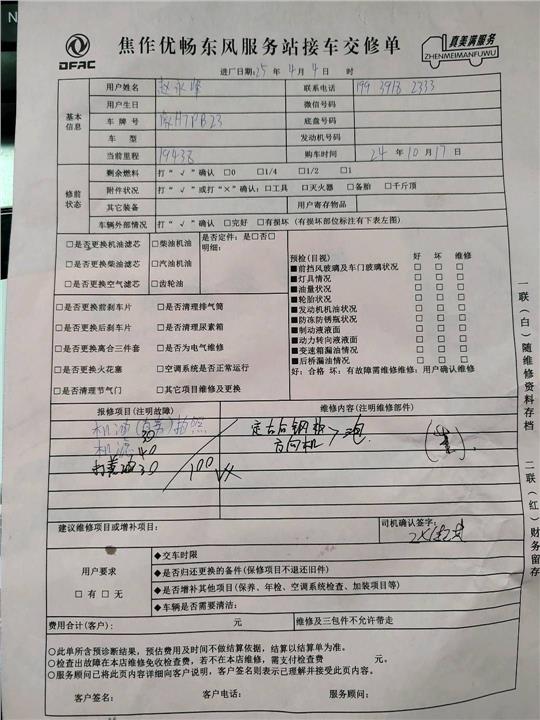 DFAC
焦作优畅东风服务站接车交修单
真美满服务
ZHENMEIMANFUWU
进厂日期:25 年 4 月 4 日 时
基本信息
用户姓名 赵永峰 联系电话 199 3918 2333
用户生日 微信号码
车 牌 号 底盘号码
车 型 发动机号码
当前里程 19438 购车时间 24 年 10 月 17 日
修前状态
剩余燃料 打“√”确认 □0 □1/4 □1/2 □1
附件状况 打“√”或打“×”确认：□工具 □灭火器 □备胎 □千斤顶
其它装备 用户寄存物品
车辆外部情况 打“√”确认 □完好 □有损坏 (有损坏部位标注有下表左图)
□是否更换机油滤芯 □柴油机油 是否定件：是□否□
明细：
□是否更换柴油滤芯 □汽油机油
□是否更换空气滤芯 □齿轮油
□是否更换前刹车片 □是否清理排气筒
□是否更换后刹车片 □是否清理尿素箱
□是否更换离合三件套 □是否为电气维修
□是否更换火花塞 □空调系统是否正常运行
□是否清理节气门 □其它项目维修及更换
预检(目视) 好 坏 维修
■前挡风玻璃及车门玻璃状况 □ □ □
■灯具情况 □ □ □
■油量状况 □ □ □
■轮胎状况 □ □ □
■发动机机油状况 □ □ □
■防冻防锈瓶状况 □ □ □
■制动液液面 □ □ □
■动力转向液液面 □ □ □
■变速箱漏油情况 □ □ □
■后桥漏油情况 □ □ □
好：合格 坏：有故障需维修维修：用户确认维修
报修项目(注明故障) 维修内容(注明维修部件)
机油(自带)拍照 30
机滤 40
打黄油30
100
定右后钢板
方向机
建议维修项目或增补项目： 司机确认签字：
用户要求
□ 有 □ 无
◆交车时限
◆是否归还更换的备件(保修项目不退还旧件)
◆是否增补其他项目(保养、年检、空调系统检查、加装项目等)
◆车辆是否需要清洁：
费用合计(客户)： 元 维修及三包件不允许带走
○此单所含预诊断结果，预估费用及时间不做结算依据，结算以结算单为准。
○检查出故障在本店维修免收检查费，若不在本店维修，需支付检查费 元。
○服务顾问已将此页内容详细向客户说明，客户签名则表示已理解并接受此页内容。
客户签名： 客户电话： 服务顾问：
一联（白）随维修资料存档
二联（红）财务留存